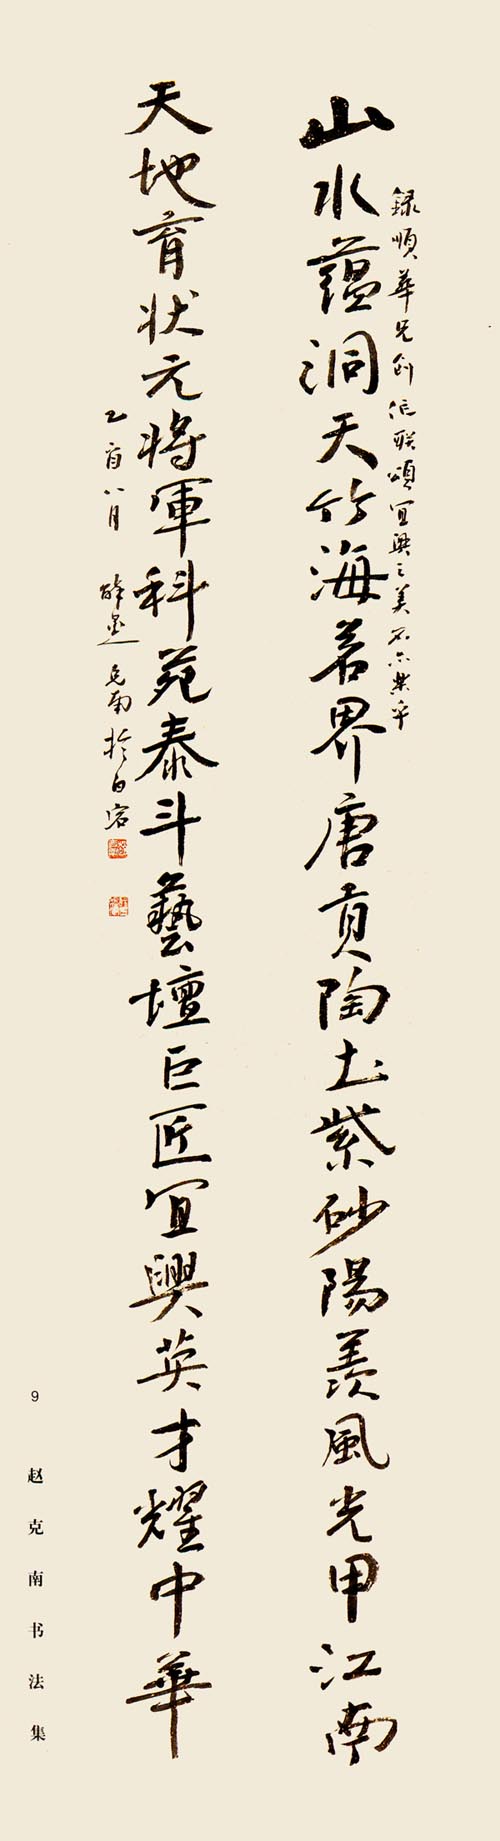 録順華兄創作联頌宜興之美不亦樂乎
山水蘊洞天竹海茗界唐貢陶土紫砂陽羨風光甲江南
天地育状元将軍科苑泰斗藝壇巨匠宜興英才耀中華
乙八月 克南於
9 赵克南书法集